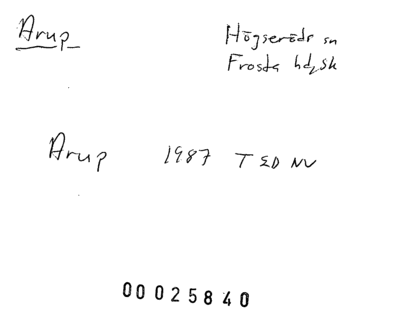 Arup
Högseröds sn
Frosta hd, Sk
Arup 1987 T ED NV
00025840